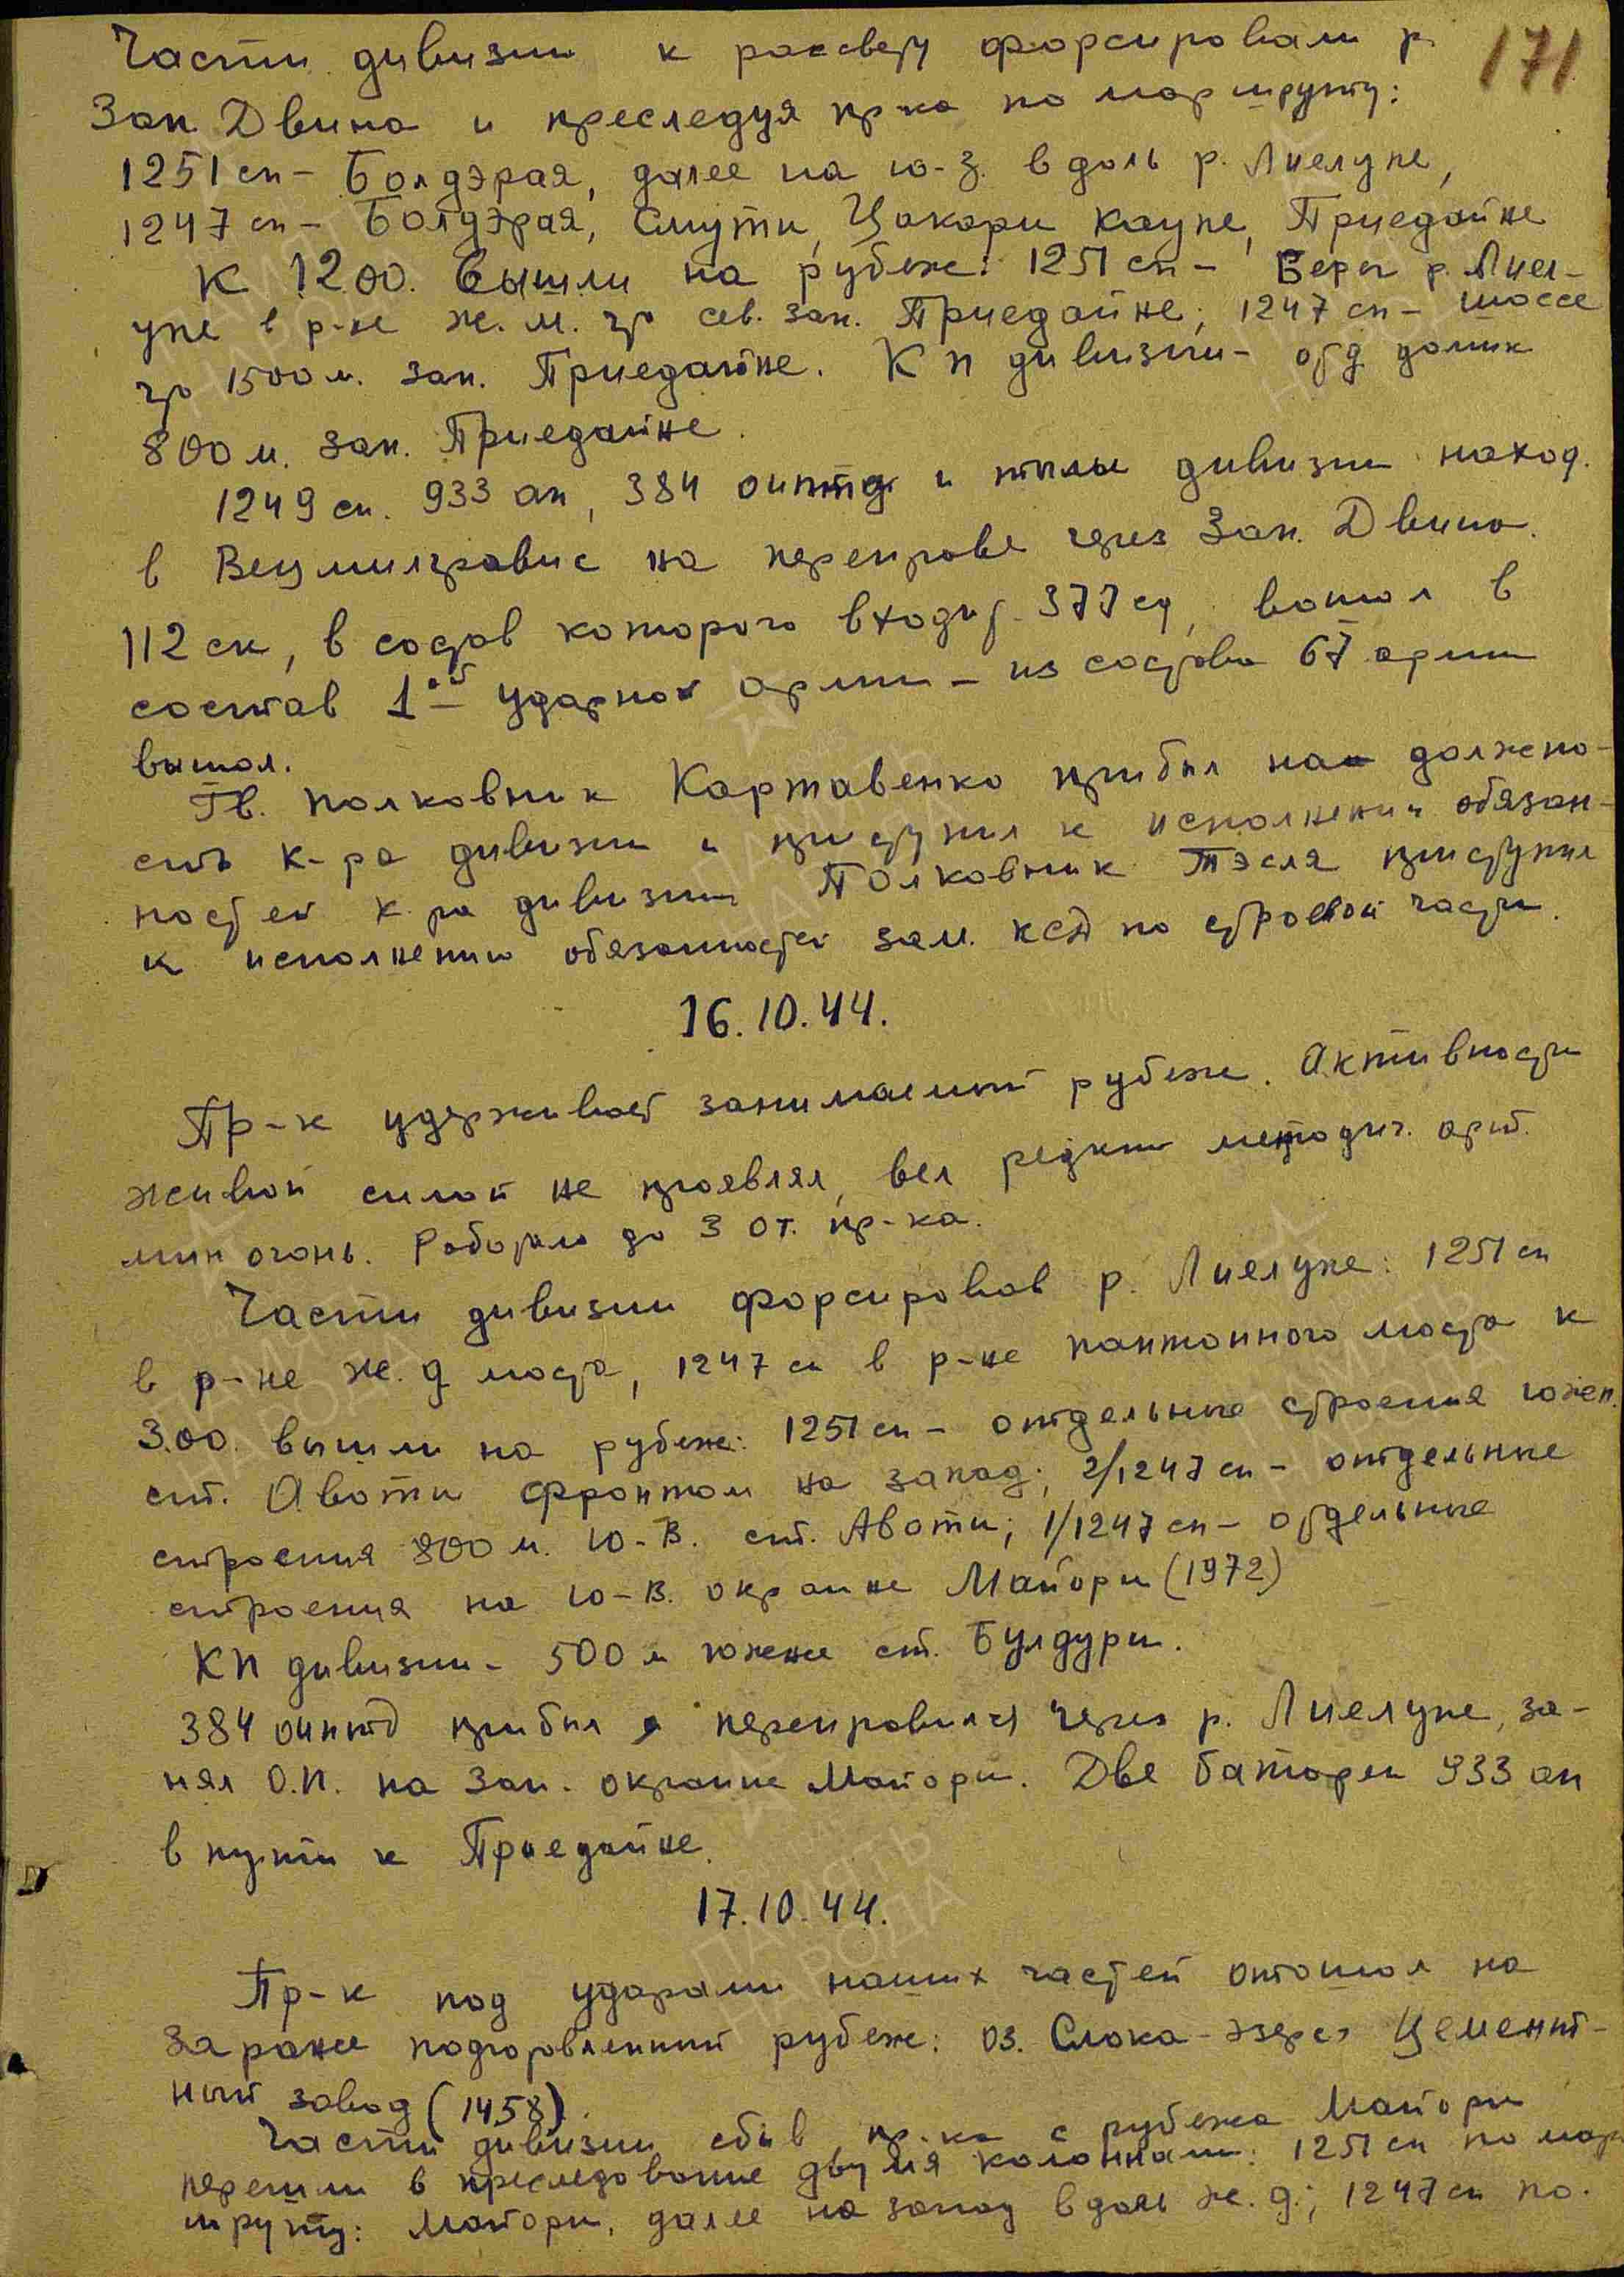 171
Части дивизии к рассвету форсировали р.
Зап. Двина и преследуя пр-ка по маршруту:
1251 сп - Болдэрая, далее на ю-з. вдоль р. Лиелупе,
1247 сп - Болдэрая, Смути, Цакари Каупе, Приедайне
К 12.00. вышли на рубеж: 1251 сп - Берег р. Лиел-
упе в р-не ж.м. др сев. зап. Приедайне; 1247 сп - шоссе
др 1500 м. зап. Приедайне. КП дивизии - отд домик
800 м. зап. Приедайне.
1249 сп. 933 ап, 384 оиптд и тылы дивизии наход.
в Вецмилгравис на переправе через Зап. Двина.
112 ск, в состав которого входит 377 сд, вошол в
состав 1ой ударной армии - из состава 67 армии
вышол.
Гв. полковник Картавенко прибыл на должно-
сть к-ра дивизии и приступил к исполнению обязан-
ностей к-ра дивизии Полковник Тэсля приступил
к исполнению обязанностей зам. КСД по строевой части.
16.10.44.
Пр-к удерживает занимаемый рубеж. Активности
живой силой не проявлял, вел редкий методич. арт.
мин огонь. Работало до 3 от. пр-ка.
Части дивизии форсировав р. Лиелупе: 1251 сп
в р-не ж.д моста, 1247 сп в р-не понтонного моста к
3.00. вышли на рубеж: 1251 сп - отдельные строения южн.
ст. Авоти фронтом на запад; 2/1247 сп - отдельные
строения 800 м. Ю-В. ст. Авоти; 1/1247 сп - отдельные
строения на Ю-В. окраине Майори (1972)
КП дивизии - 500 м южнее ст. Булдури.
384 оиптд прибыл и переправился через р. Лиелупе, за-
нял О.П. на Зап. окраине Майори. Две батареи 933 ап
в пути к Приедайне.
17.10.44.
Пр-к под ударами наших частей отошол на
заранее подготовленный рубеж: оз. Слока-эзерс Цемент-
ный завод (1458).
Части дивизии сбив пр-ка с рубежа Майори
перешли в преследование двумя колоннами: 1251 сп по мар
шруту: Майори, далее на запад вдоль ж.д.; 1247 сп по.